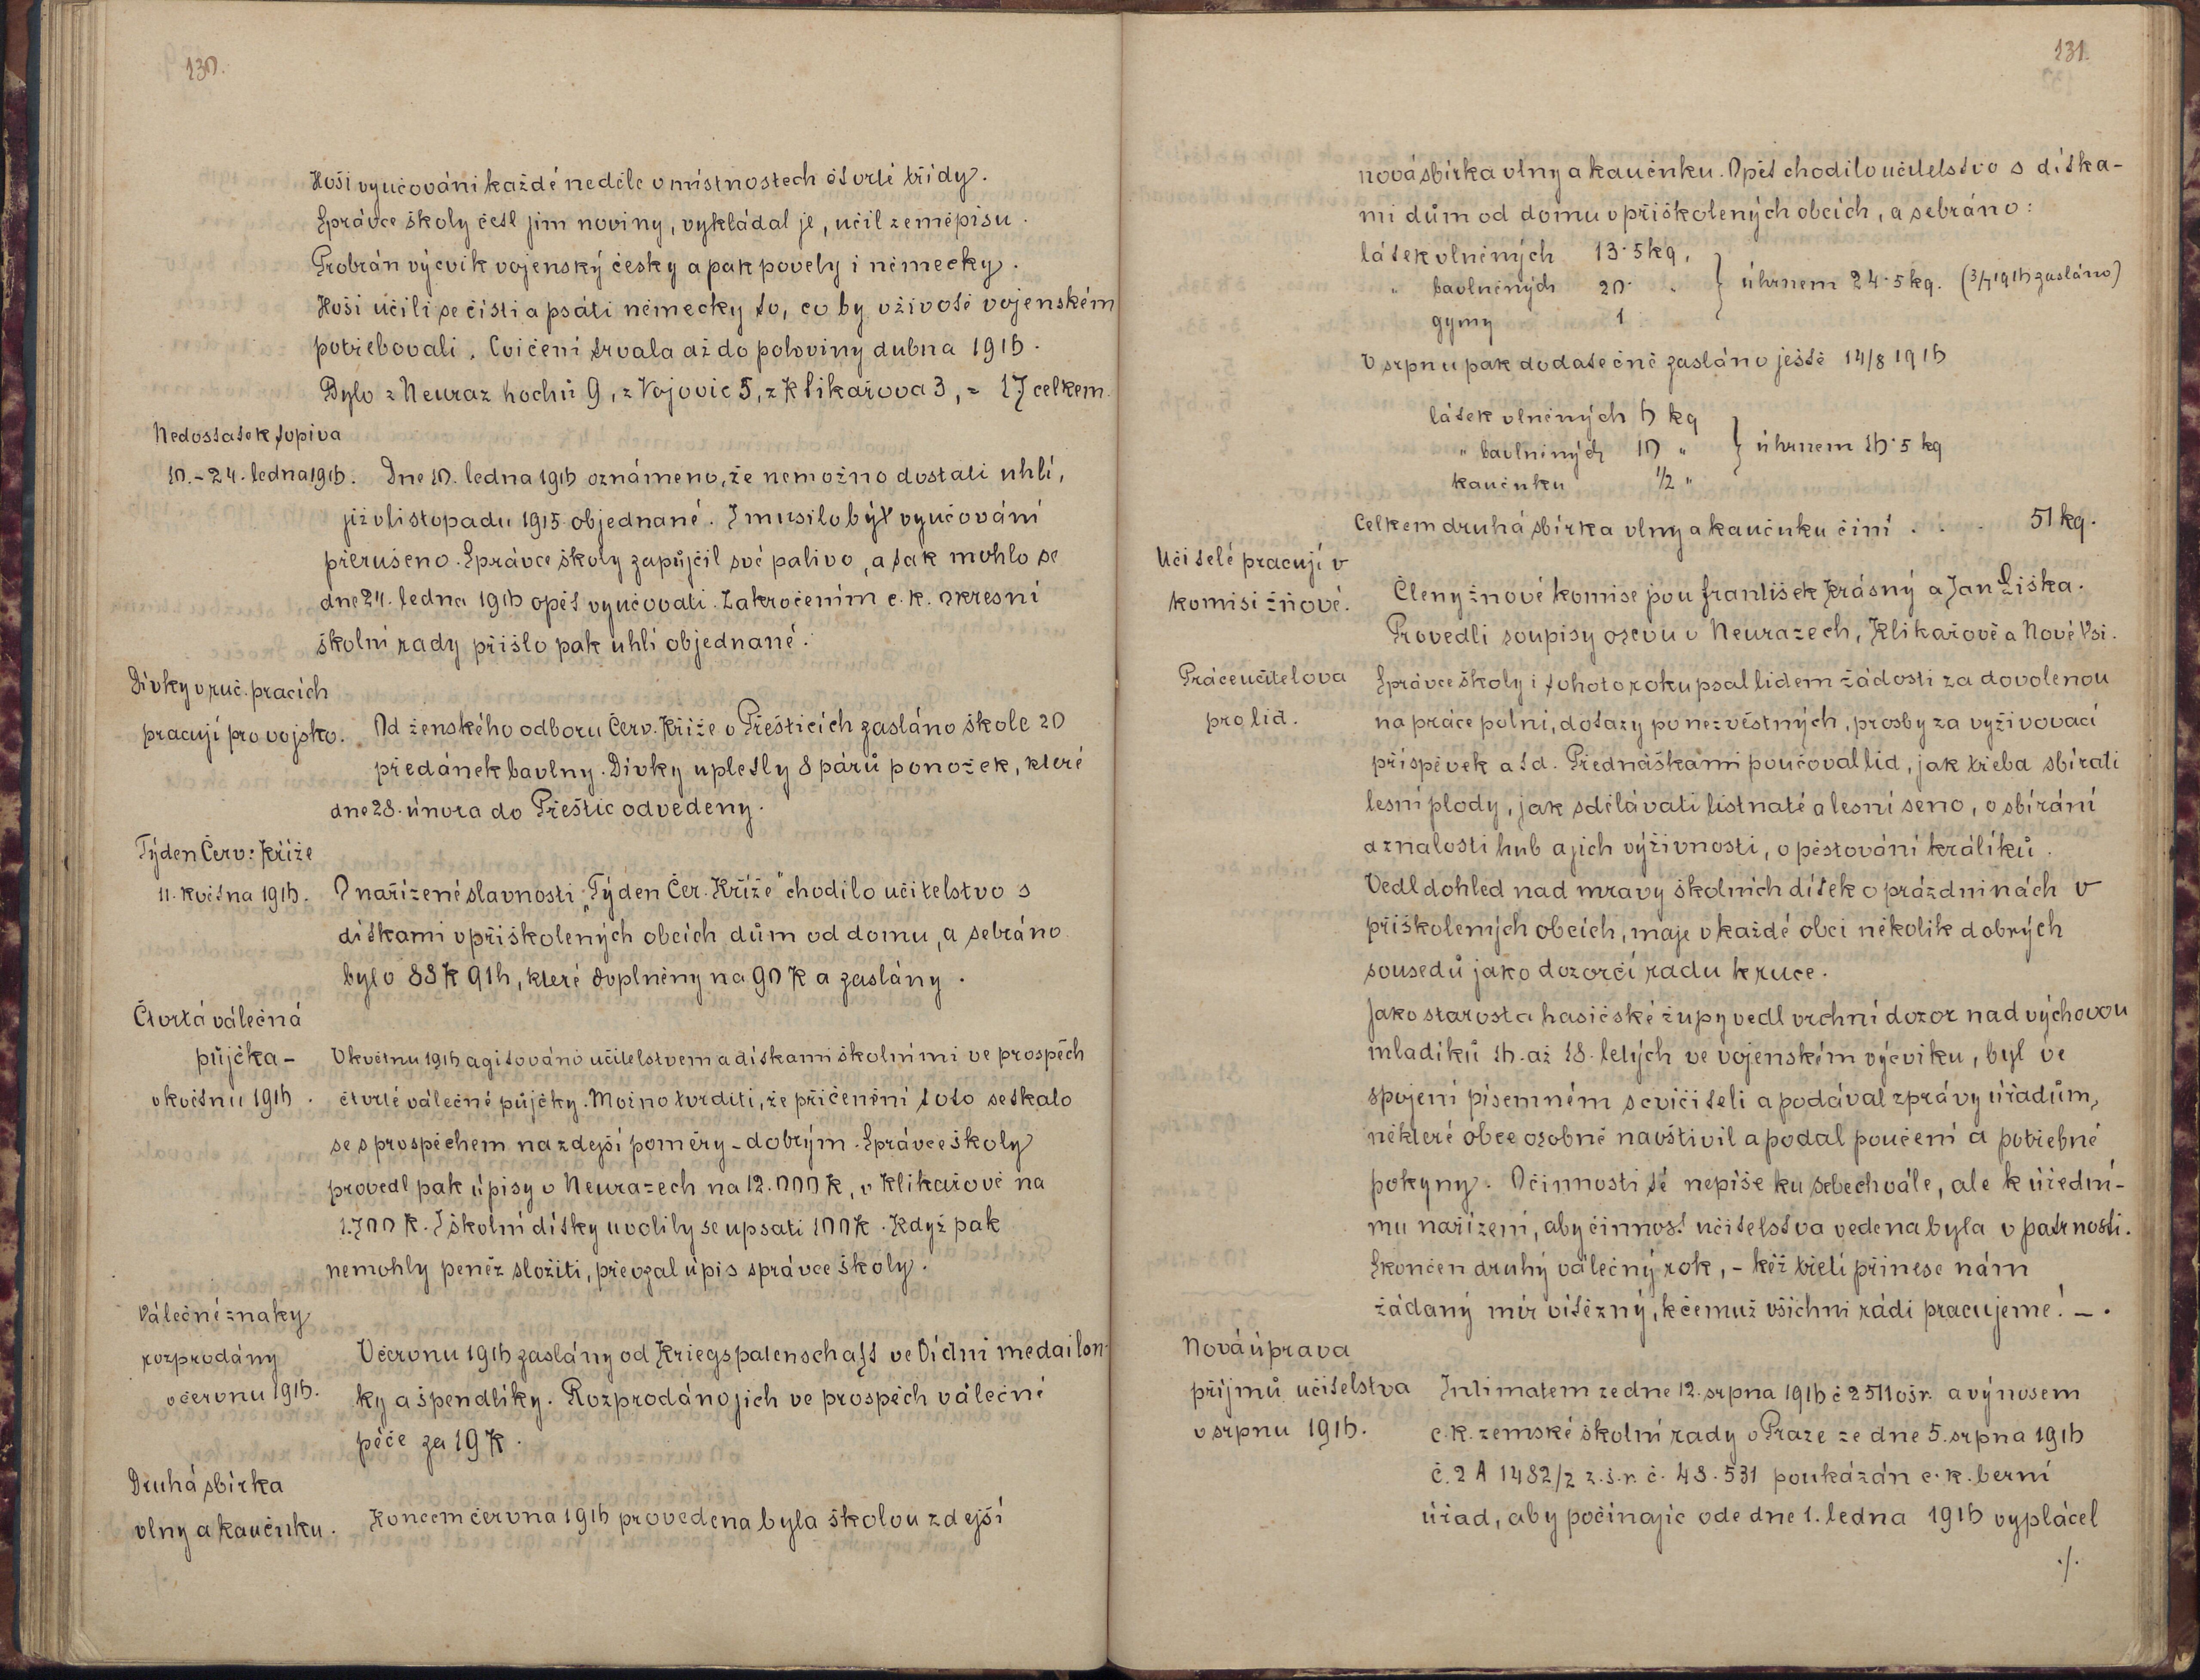 130.
Hoši vyučováni každé neděle v místnostech čtvrté třídy.
Správce školy četl jim noviny, vykládal je, učil zeměpisu.
Probrán výcvik vojenský česky a pak povely i německy.
Hoši učili se čísti a psáti německy to, co by v životě vojenském
potřebovali. Cvičení trvala až do poloviny dubna 1916.
Bylo z Neuraz hochů 9, z Vojovic 5, z Klikařova 3, = 17 celkem.
Nedostatek topiva
10.-24. ledna 1916. Dne 10. ledna 1916 oznámeno, že nemožno dostati uhlí,
již v listopadu 1915 objednané. I musilo být vyučování
přerušeno. Správce školy zapůjčil své palivo, a tak mohlo se
dne 24. ledna 1916 opět vyučovati. Zakročením c. k. okresní
školní rady přišlo pak uhlí objednané.
Dívky v ruč. pracích
pracují pro vojsko. Od ženského odboru Červ. Kříže v Přešticích zasláno škole 20
předánek bavlny. Dívky upletly 8 párů ponožek, které
dne 28. února do Přeštic odvedeny.
Týden Červ. Kříže
11. května 1916. O nařízené slavnosti „Týden Čer. Kříže" chodilo učitelstvo s
dítkami v přiškolených obcích dům od domu, a sebráno
bylo 88 K 91 h, které doplněny na 90 K a zaslány.
Čtvrtá válečná
půjčka -
v květnu 1916.
V květnu 1916 agitováno učitelstvem a dítkami školními ve prospěch
čtvrté válečné půjčky. Možno tvrditi, že přičenění toto setkalo
se s prospěchem na zdejší poměry - dobrým. Správce školy
provedl pak úpisy v Neurazech na 12.000 K, v Klikařově na
1.700 K. I školní dítky uvolily se upsati 100 K. Když pak
nemohly peněz složiti, převzal úpis správce školy.
Válečné znaky
rozprodány
v červnu 1916.
V červnu 1916 zaslány od Kriegspatenschaft ve Vídni medailon-
ky a špendlíky. Rozprodáno jich ve prospěch válečné
péče za 19 K.
Druhá sbírka
vlny a kaučuku. Koncem června 1916 provedena byla školou zdejší
131.
nová sbírka vlny a kaučuku. Opět chodilo učitelstvo s dítka-
mi dům od domu v přiškolených obcích, a sebráno:
látek vlněných 13·5 kg.
" bavlněných 20· " } úhrnem 24·5 kg. (3/7 1916 zasláno)
gymy 1
V srpnu pak dodatečně zasláno ještě 14/8 1916
látek vlněných 6 kg
" bavlněných 10 " } úhrnem 16·5 kg
kaučuku 1/2 "
Celkem druhá sbírka vlny a kaučuku činí . . . 51 kg.
Učitelé pracují v
komisi žňové.
Členy žnové komise jsou František Krásný a Jan Liška.
Provedli soupisy osevu v Neurazech, Klikařově a Nové Vsi.
Práce učitelova
pro lid.
Správce školy i tohoto roku psal lidem žádosti za dovolenou
na práce polní, dotazy po nezvěstných, prosby za vyživovací
příspěvek a t d. Přednáškami poučoval lid, jak třeba sbírati
lesní plody, jak sdělávati listnaté a lesní seno, o sbírání
a znalosti hub a jich výživnosti, o pěstování králíků.
Vedl dohled nad mravy školních dítek o prázdninách v
přiškolených obcích, maje v každé obci několik dobrých
sousedů jako dozorčí radu k ruce.
Jako starosta hasičské župy vedl vrchní dozor nad výchovou
mladíků 16. až 18. letých ve vojenském výcviku, byl ve
spojení písemném s cvičiteli a podával zprávy úřadům,
některé obce osobně navštivil a podal poučení a potřebné
pokyny. O činnosti té nepíše ku sebechvále, ale k úřední-
mu nařízení, aby činnost učitelstva vedena byla v patrnosti.
Skončen druhý válečný rok, - kéž třetí přinese nám
žádaný mír vítězný, k čemuž všichni rádi pracujeme! - .
Nová úprava
příjmů učitelstva
v srpnu 1916.
Intimatem ze dne 12. srpna 1916 č 2511 ošr. a výnosem
c. k. zemské školní rady v Praze ze dne 5. srpna 1916
č. 2 A 1482/2 z. š. r. č. 48.531 poukázán c. k. berní
úřad, aby počínajíc ode dne 1. ledna 1916 vyplácel
./.